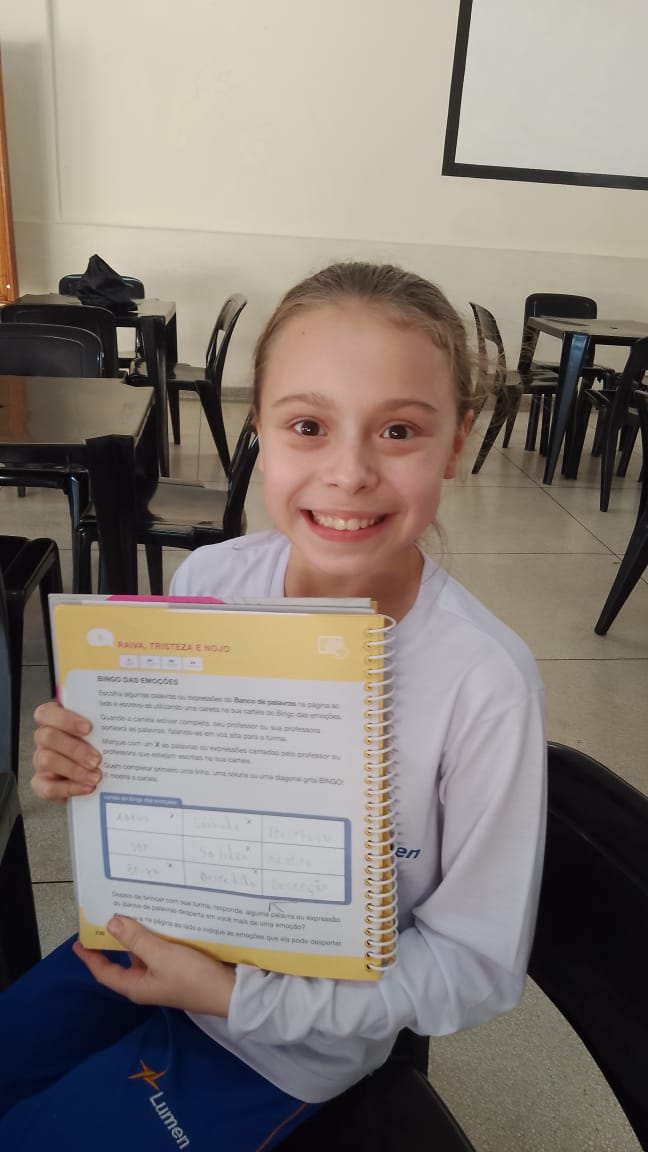 RAIVA, TRISTEZA E NOJO
BINGO DAS EMOÇÕES
Escolha algumas palavras ou expressões do Banco de palavras na página ao
lado e escreva-as utilizando uma caneta na sua cartela do Bingo das emoções.
Quando a cartela estiver completa, seu professor ou sua professora
sorteará as palavras, falando-as em voz alta para a turma.
Marque com um X as palavras ou expressões cantadas pelo professor ou
professora que estejam escritas na sua cartela.
Quem completar primeiro uma linha, uma coluna ou uma diagonal grita BINGO!
E mostra a cartela.
Cartela do Bingo das emoções
x
x
DOR
Solidão
x
mentira
Briga
x
x
Decepção
Depois de brincar com sua turma, responda: alguma palavra ou expressão
do Banco de palavras desperta em você mais de uma emoção?
e na página ao lado e indique as emoções que ela pode despertar.
en
Lumen